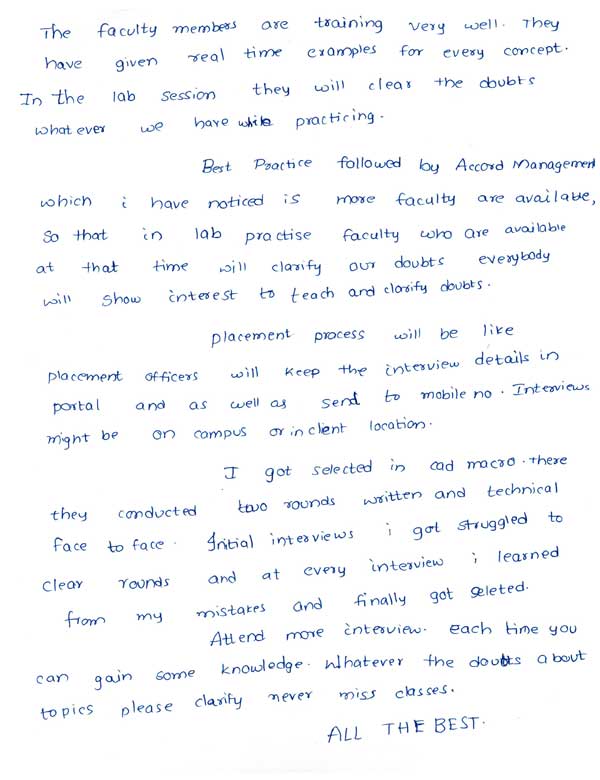 The faculty members are training very well. They
have given real time examples for every concept.
In the lab session they will clear the doubts
what ever we have while practicing.
Best Practice followed by Accord Management
which i have noticed is more faculty are available,
so that in lab practise faculty who are available
at that time will clarify our doubts everybody
will show interest to teach and clarify doubts.
placement process will be like
placement officers will keep the interview details in
portal and as well as send to mobile no. Interviews
might be on campus or in client location.
I got selected in cad macro. there
they conducted two rounds written and technical
face to face. Initial interviews i got struggled to
clear rounds and at every interview i learned
from my mistakes and finally got seleted.
Attend more interview. each time you
can gain some knowledge. Whatever the doubts about
topics please clarify never miss classes.
ALL THE BEST.